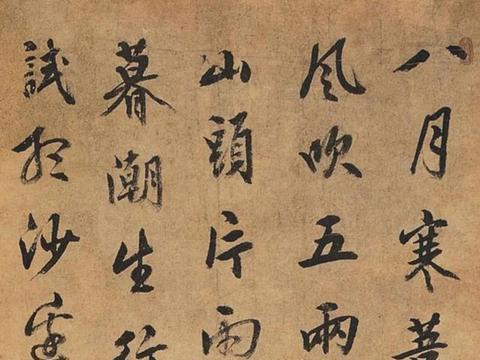 八月寒葦
風吹五兩
山頭片雨
暮潮生行
試聽沙邊